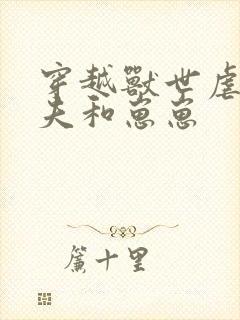 穿越獸世虐
夫和崽崽
簾十里